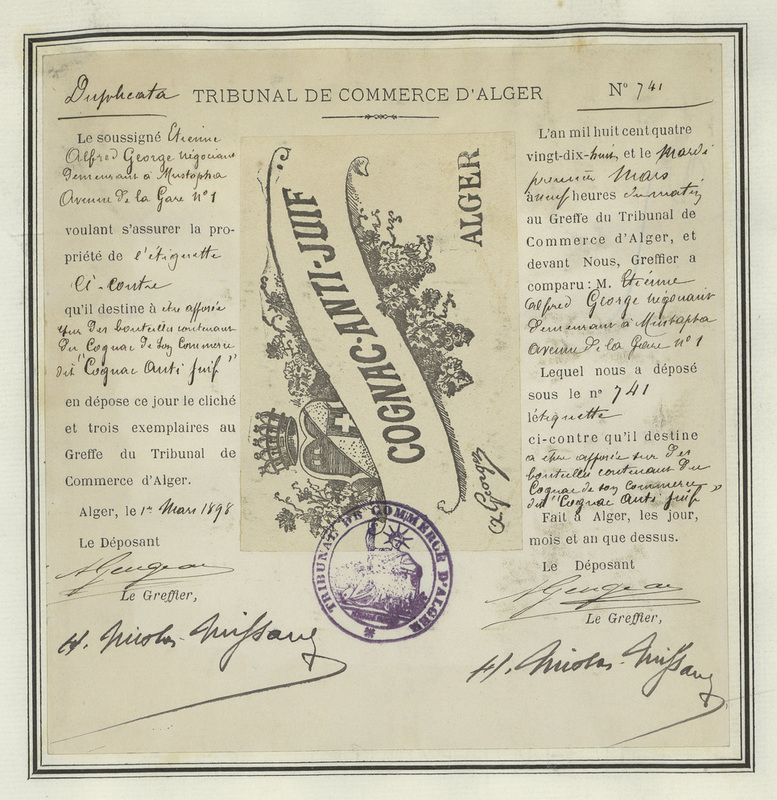 Duplicata
TRIBUNAL DE COMMERCE D'ALGER
Nº 741
Le soussigné Etienne
Alfred George négociant
Demeurant à Mustapha
Avenue de la Gare nº 1
voulant s'assurer la pro-
priété de l'étiquette
Ci-contre
qu'il destine à être apposée
sur des bouteilles contenant
du Cognac de son commerce
dit "Cognac Anti juif"
en dépose ce jour le cliché
et trois exemplaires au
Greffe du Tribunal de
Commerce d'Alger.
Alger, le 1er Mars 1898
Le Déposant
Le Greffier,
COGNAC-ANTI-JUIF
ALGER
TRIBUNAL DE COMMERCE D'ALGER
L'an mil huit cent quatre
vingt-dix-huit, et le Mardi
premier Mars
à neuf heures du matin
au Greffe du Tribunal de
Commerce d'Alger, et
devant Nous, Greffier a
comparu: M. Etienne
Alfred George négociant
demeurant à Mustapha
Avenue de la Gare nº 1
Lequel nous a déposé
sous le nº 741
l'étiquette
ci-contre qu'il destine
à être apposée sur des
bouteilles contenant du
Cognac de son commerce
dit "Cognac Anti juif"
Fait à Alger, les jour,
mois et an que dessus.
Le Déposant
Le Greffier,